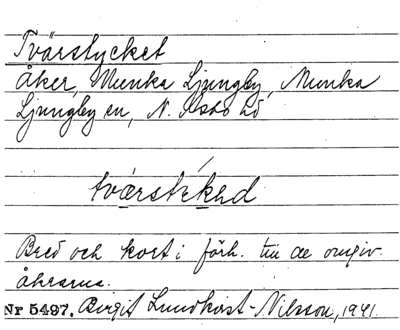 Tvärstycket
Åker, Munka Ljungby, Munka
Ljungby sn, N. Åsbo hd
tvárstýkhd
Bred och kort i förh. till de omgiv.
åkrarna.
Nr 5497. Birgit Lundkvist-Nilsson, 1941.